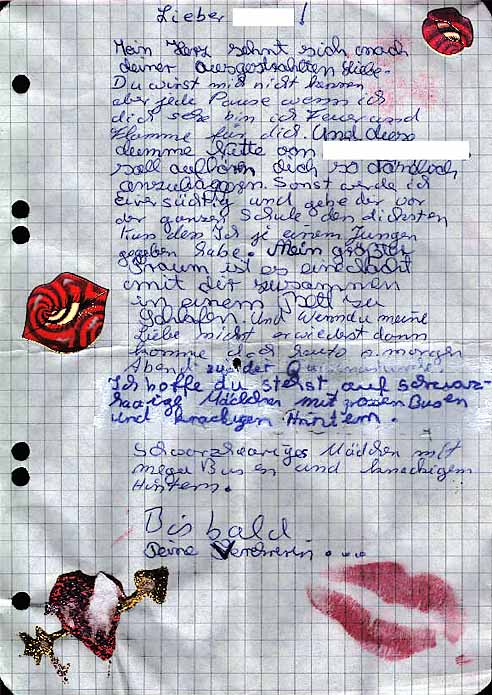 Lieber !
Mein Herz sehnt sich nach
deiner ausgestrahlten Liebe.
Du wirst mich nicht kennen
aber jede Pause wenn ich
dich sehe bin ich Feuer und
Flamme für dich. Und diese
dumme von
soll aufhören dich so
anzubaggern. Sonst werde ich
Eifersüchtig und gebe dir vor
der ganzen Schule den dicksten
Kuss den Ich je einem Jungen
gegeben habe. Mein größter
Traum ist es eine Nacht
mit dir zusammen
in einem Bett zu
Schlafen. Und Wenn du meine
Liebe nicht erwiederst dann
komme doch heute o. morgen
Abend zu der
Ich hoffe du stehst auf schwarz-
haarige Mädchen mit grossen Busen
und knackigen Hintern.
Schwarzhaariges Mädchen mit
mega Busen und knackigem
Hintern.
Bis bald
Deine Verehrerin....